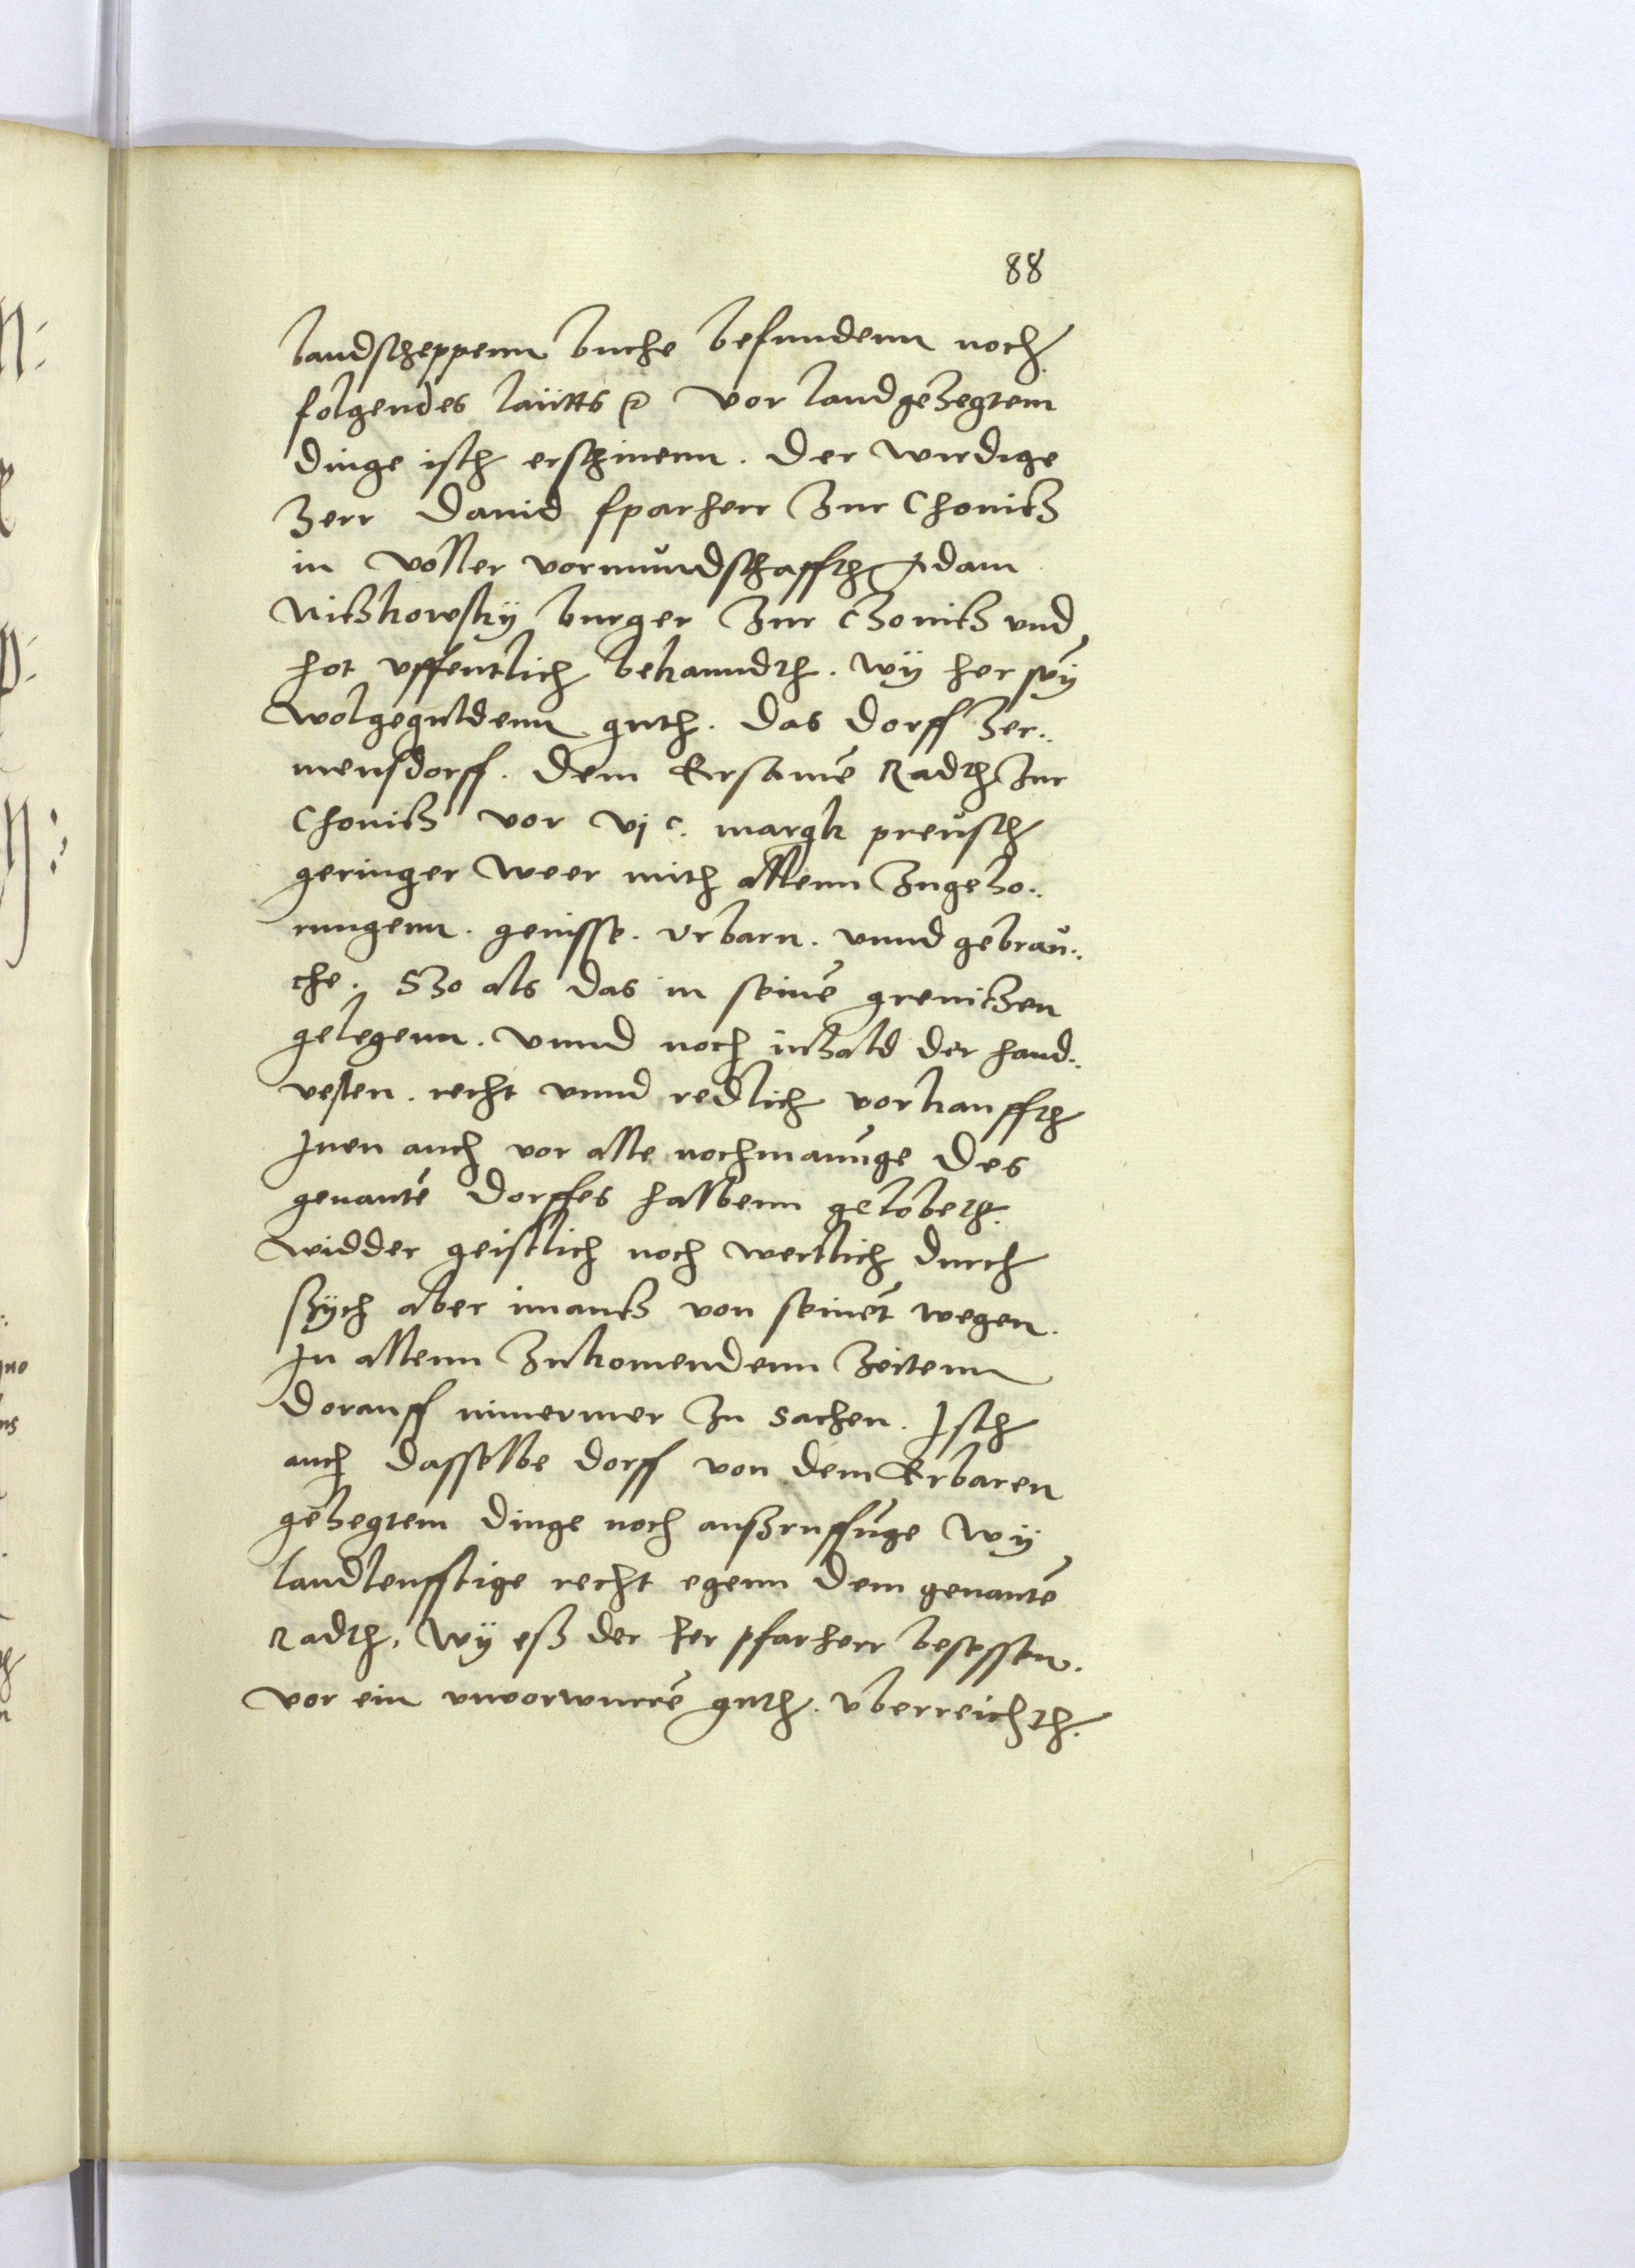 88
landscheppenn buche befundenn noch
folgendes lautts Vor landgehegtem
dinge isth erschinenn. Der wirdige
Herr Dauid fparherr Zur Chonitz
in voller vormundschaffth Adam
Nitzkowsky burger Zur Chonitz vnd
hot vffentlich bekanndth. wÿ her sein
wolgeguldenn guth. das dorff Her..
mensdorff. dem Ersamē Radth Zur
Chonitz vor vj c. margk preusch
geringer weer mith allenn Zugeho..
rungenn. genisse. Vrbarn. vnnd gebrau..
che. Szo als das in seinē grenitzen
gelegenn. vnnd noch inhald der hand..
vesten. recht vnnd redlich vorkauffth
Inen auch vor alle nochmanūge des
genantē dorffes halbenn gelobeth.
widder geistlich noch wertlich durch
sÿch aber imants von seinēt wegen.
In allenn Zukomendenn Zeitenn
dorauff nimermer Zu sachen. Isth
auch dasselbe dorff von dem Erbaren
gehegtem dinge noch außruffūge wÿ
landleufftige recht egenn dem genantē
Radth. wÿ eß der her pfarherr besessen.
vor ein vnvorwurrē guth. vberreichth.